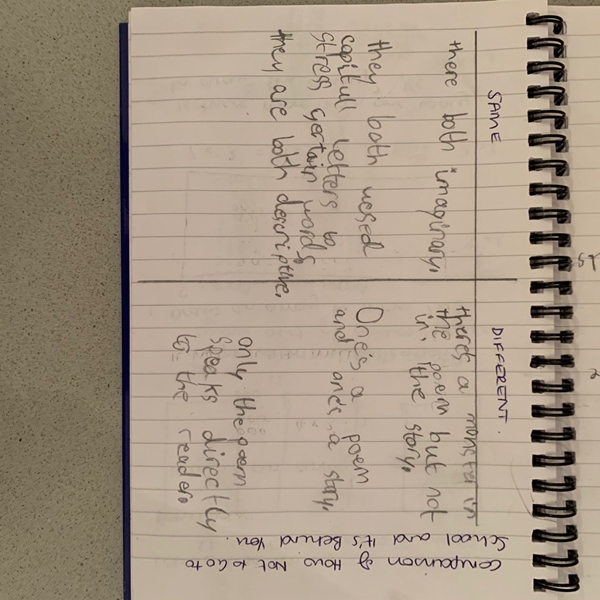 Comparison of How Not to Go to
School and It's Behind You.
SAME
there both imaginary.
they both uesed
capitull letters to
stress certain words.
they are both descriptive.
DIFFERENT.
theres a monster in
the poem but not
in the story.
One's a poem
and one's a story.
only the poem
speaks directly
to the reader.